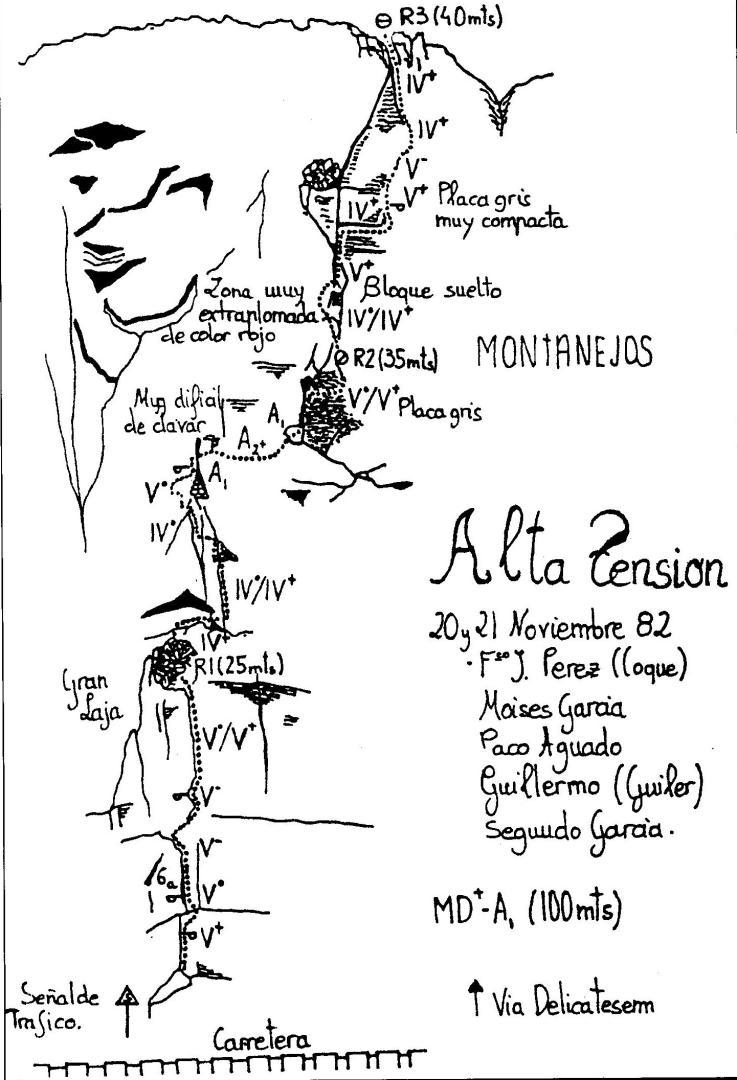 R3 (40mts)
IV+
IV+
V-
V+
Placa gris
muy compacta
IV+
V+
Bloque suelto
Zona muy
extraplomada
de color rojo
IV°/IV+
R2 (35mts)
MONTANEJOS
V°/V+
Placa gris
Muy dificil
de clavar
A1
A2+
A1
V°
IV°
IV°/IV+
IV
R1 (25mts)
Gran
Laja
V°/V+
V-
V-
6a
V°
V+
Alta Tension
20 y 21 Noviembre 82
Fso J. Perez (Coque)
Moises Garcia
Paco Aguado
Guillermo (Guiler)
Segundo Garcia.
MD+-A1 (100mts)
Señal de
Trafico.
Via Delicatesem
Carretera